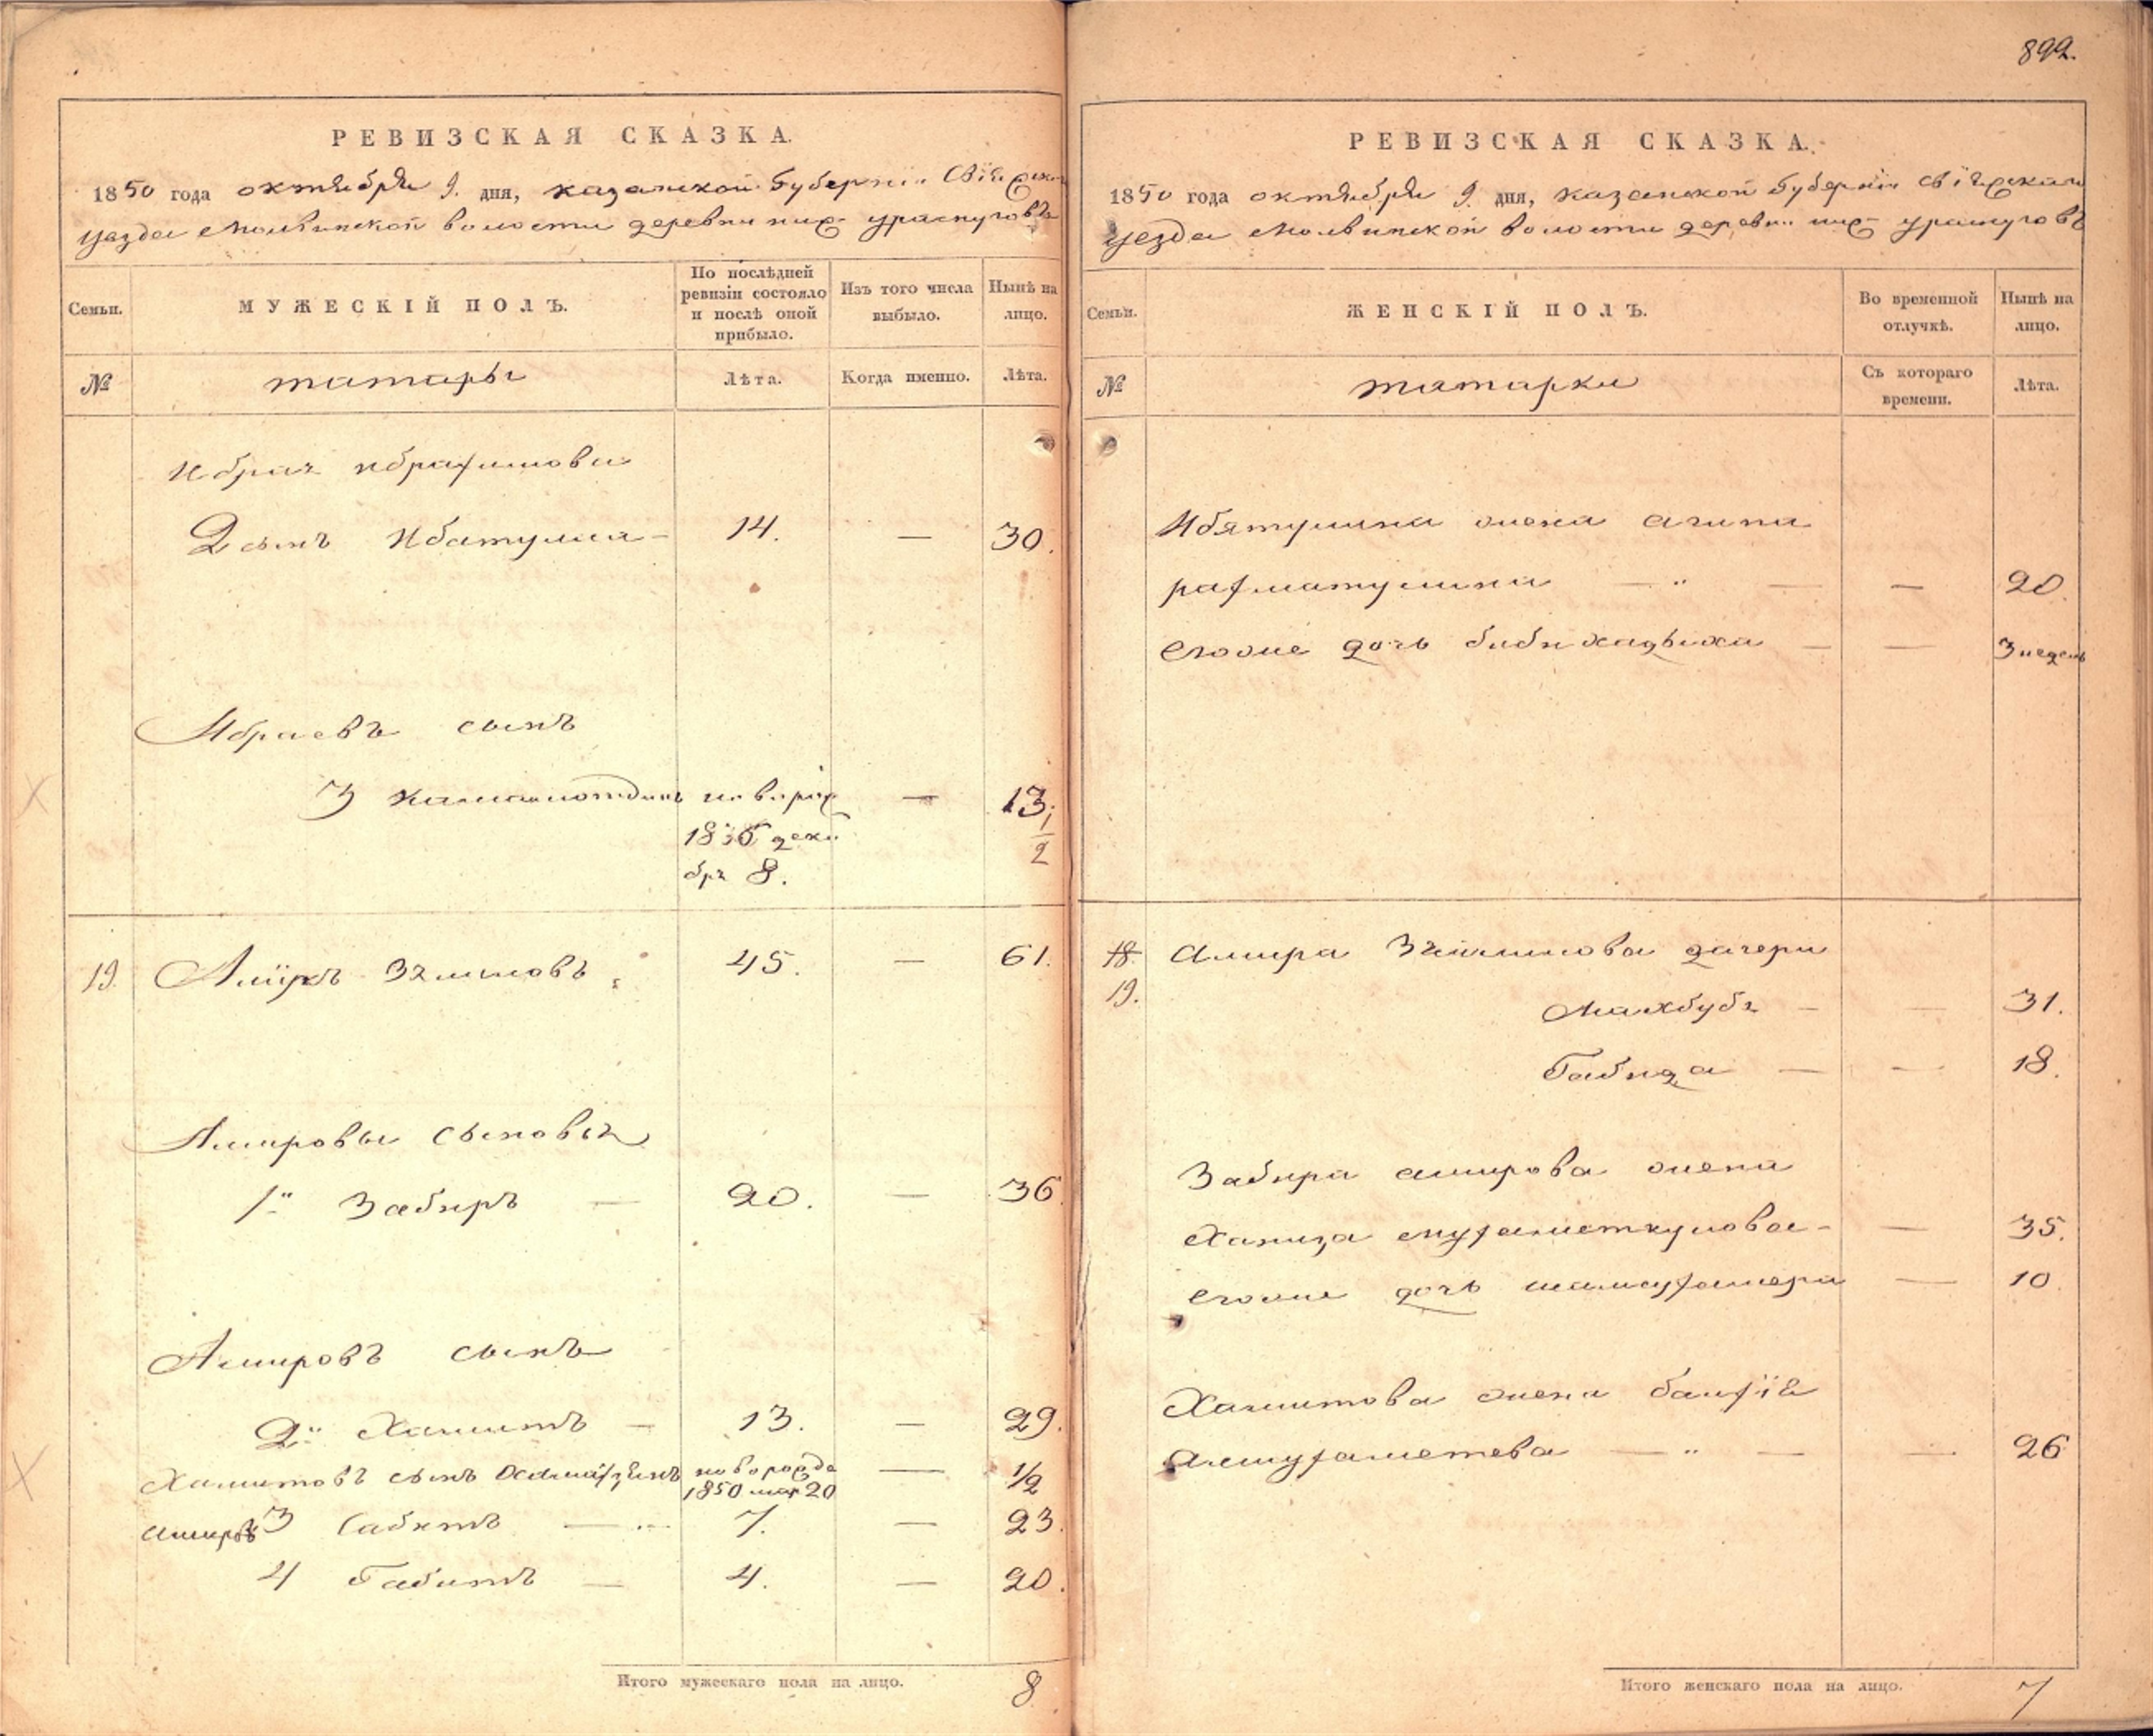 892.
РЕВИЗСКАЯ СКАЗКА.
1850 года октября 9. дня, казанской губерніи Свіяжскаго
уезда Молвинской волости деревни ниж- ураспуговъ
Семьи.
МУЖЕСКІЙ ПОЛЪ.
По послѣдней ревизіи состояло и послѣ оной прибыло.
Изъ того числа выбыло.
Нынѣ на лицо.
№
татары
Лѣта.
Когда именно.
Лѣта.
Ибрая ибрагимова
2 сынъ Ибатулла - 14. — 30.
Ибраевъ сынъ
3 Камалотдинъ новорож — 13.
1836 декабря 8. 1/2
19. Амiръ Зямиловъ 45. — 61.
Амировы сыновья
1й Забиръ — 20. — 36
Амировъ сынъ
2й Хамитъ — 13. — 29.
Хамитовъ сынъ новорожде — 1/2
1850 мар 20
Амиръ 3 Сабитъ — 7. — 23.
4 Габитъ — 4. — 20.
Итого мужескаго пола на лицо. 8
РЕВИЗСКАЯ СКАЗКА.
1850 года октября 9. дня, казанской губерніи свіяжскаго
уезда Молвинской волости деревни ниж- ураспуговъ
Семьи.
ЖЕНСКІЙ ПОЛЪ.
Во временной отлучкѣ.
Нынѣ на лицо.
№
татарки
Съ котораго времени.
Лѣта.
Ибятуллина жена
рафматуллина — " — — 20.
Егоже дочь биби хадыжа — — 3 недель
18. Амира Зямилова дачери
19. Махбубя — — 31.
Габида — — 18.
Забира амирова жена
Ханиза муфаметкулова - — 35.
егоже дочь — 10.
Хамитова жена
алмуфаметева — " — — 26
Итого женскаго пола на лицо. 7